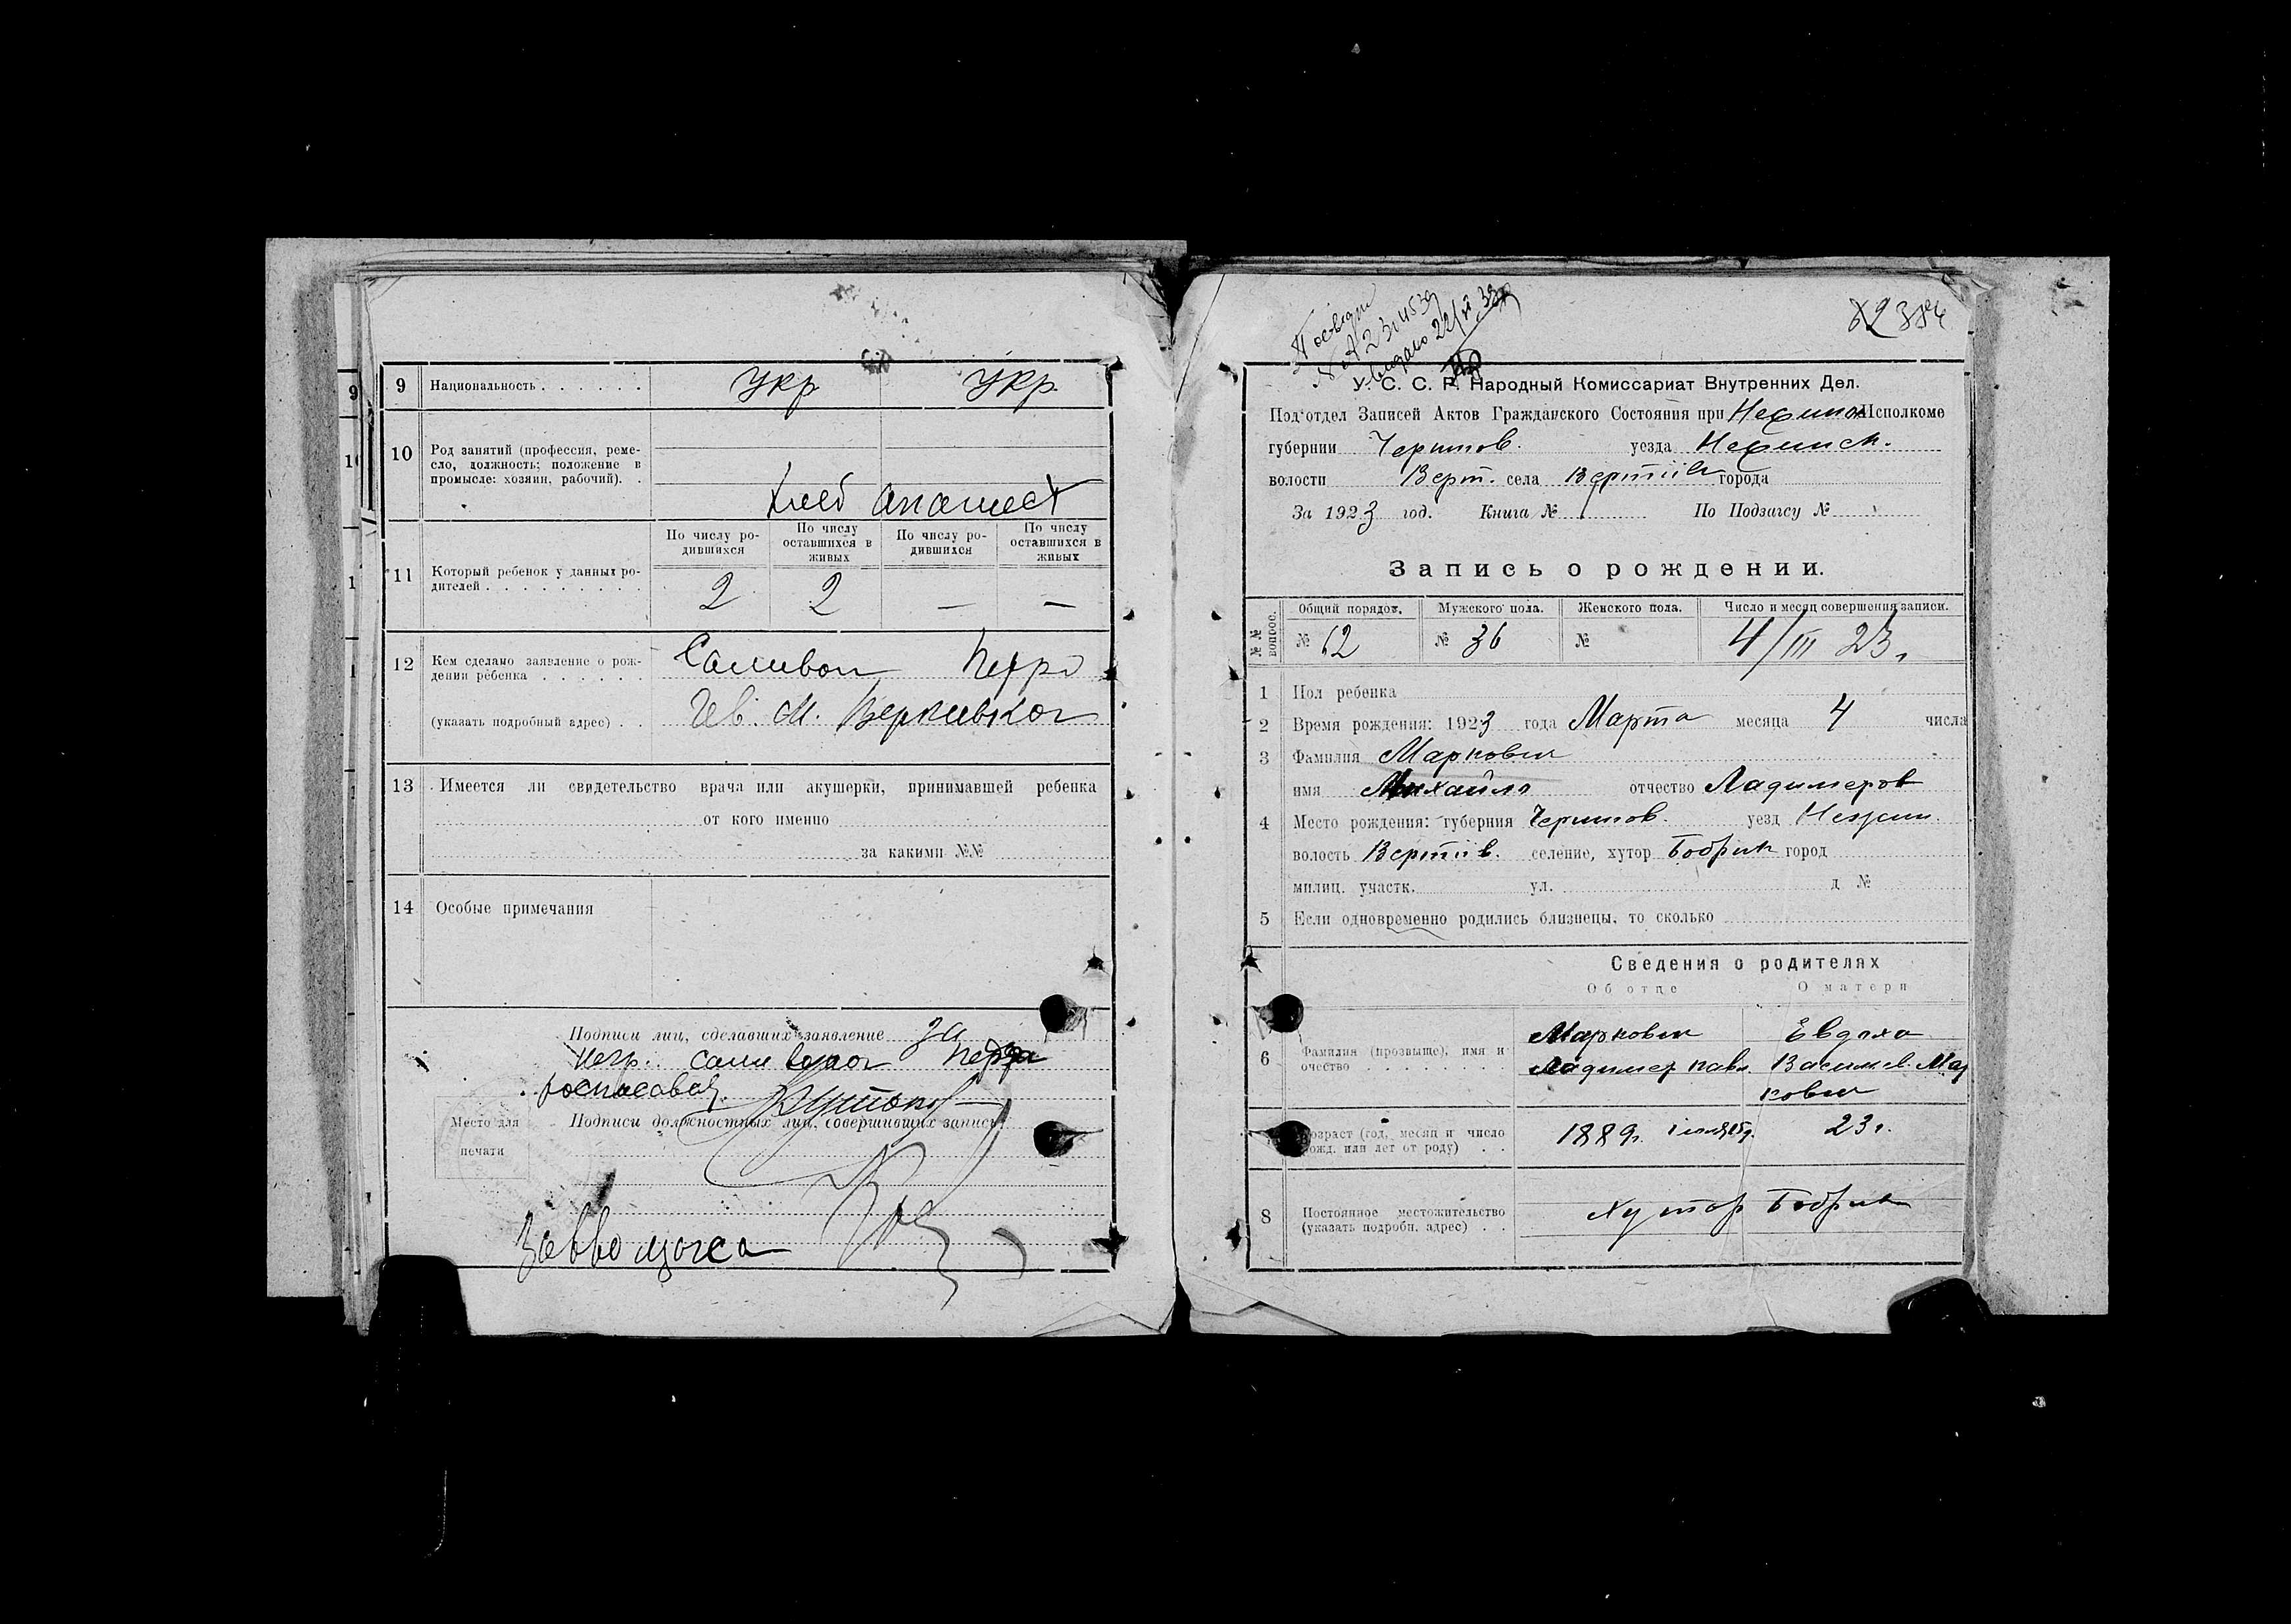 9 Национальность . . . . . . укр укр
10 Род занятий (профессия, реме-
сло, должность; положение в
промысле: хозяин, рабочий). .
хлеб
11 Который ребенок у данных ро-
дителей . . . . . . . . .
По числу ро-
дившихся
По числу
оставшихся в
живых
По числу ро-
дившихся
По числу
оставшихся в
живых
2 2 — —
12 Кем сделано заявление о рож-
дении ребенка . . . . . .
(указать подробный адрес) . .
Петро
13 Имеется ли свидетельство врача или акушерки, принимавшей ребенка
от кого именно
за какими №№
14 Особые примечания
Подписи лиц, сделавших заявление за
негр. Петра
Подписи должностных лиц, совершивших запись:
Место для
печати
82 384
У. С. С. Р. Народный Комиссариат Внутренних Дел.
Под'отдел Записей Актов Гражданского Состояния при Исполкоме
губернии Чернигов. уезда
волости Верт. села Вертіївка города
За 1923 год. Книга № По Подзагсу №
Запись о рождении.
№№ вопрос.
Общий порядов. Мужского пола. Женского пола. Число и месяц совершения записи.
№ 62 № 36 № 4/III 23.
1 Пол ребенка
2 Время рождения: 1923 года Марта месяца 4 числа
3 Фамилия Маркович
имя Михайло отчество Ладимеров
4 Место рождения: губерния Чернигов. уезд Нежин.
волость Вертіїв. селение, хутор Бобрик город
милиц. участк. ул. д №
5 Если одновременно родились близнецы, то сколько
Сведения о родителях
Об отце О матери
6 Фамилия (прозвище), имя и
отчество . . . . . . . .
Маркович
Ладимер Павл.
Евдоха
Василев. Мар
кович
Возраст (год, месяц и число
рожд. или лет от роду) . .
1889г. 23 г.
8 Постоянное местожительство
(указать подробн. адрес) . .
Хутор Бобрик